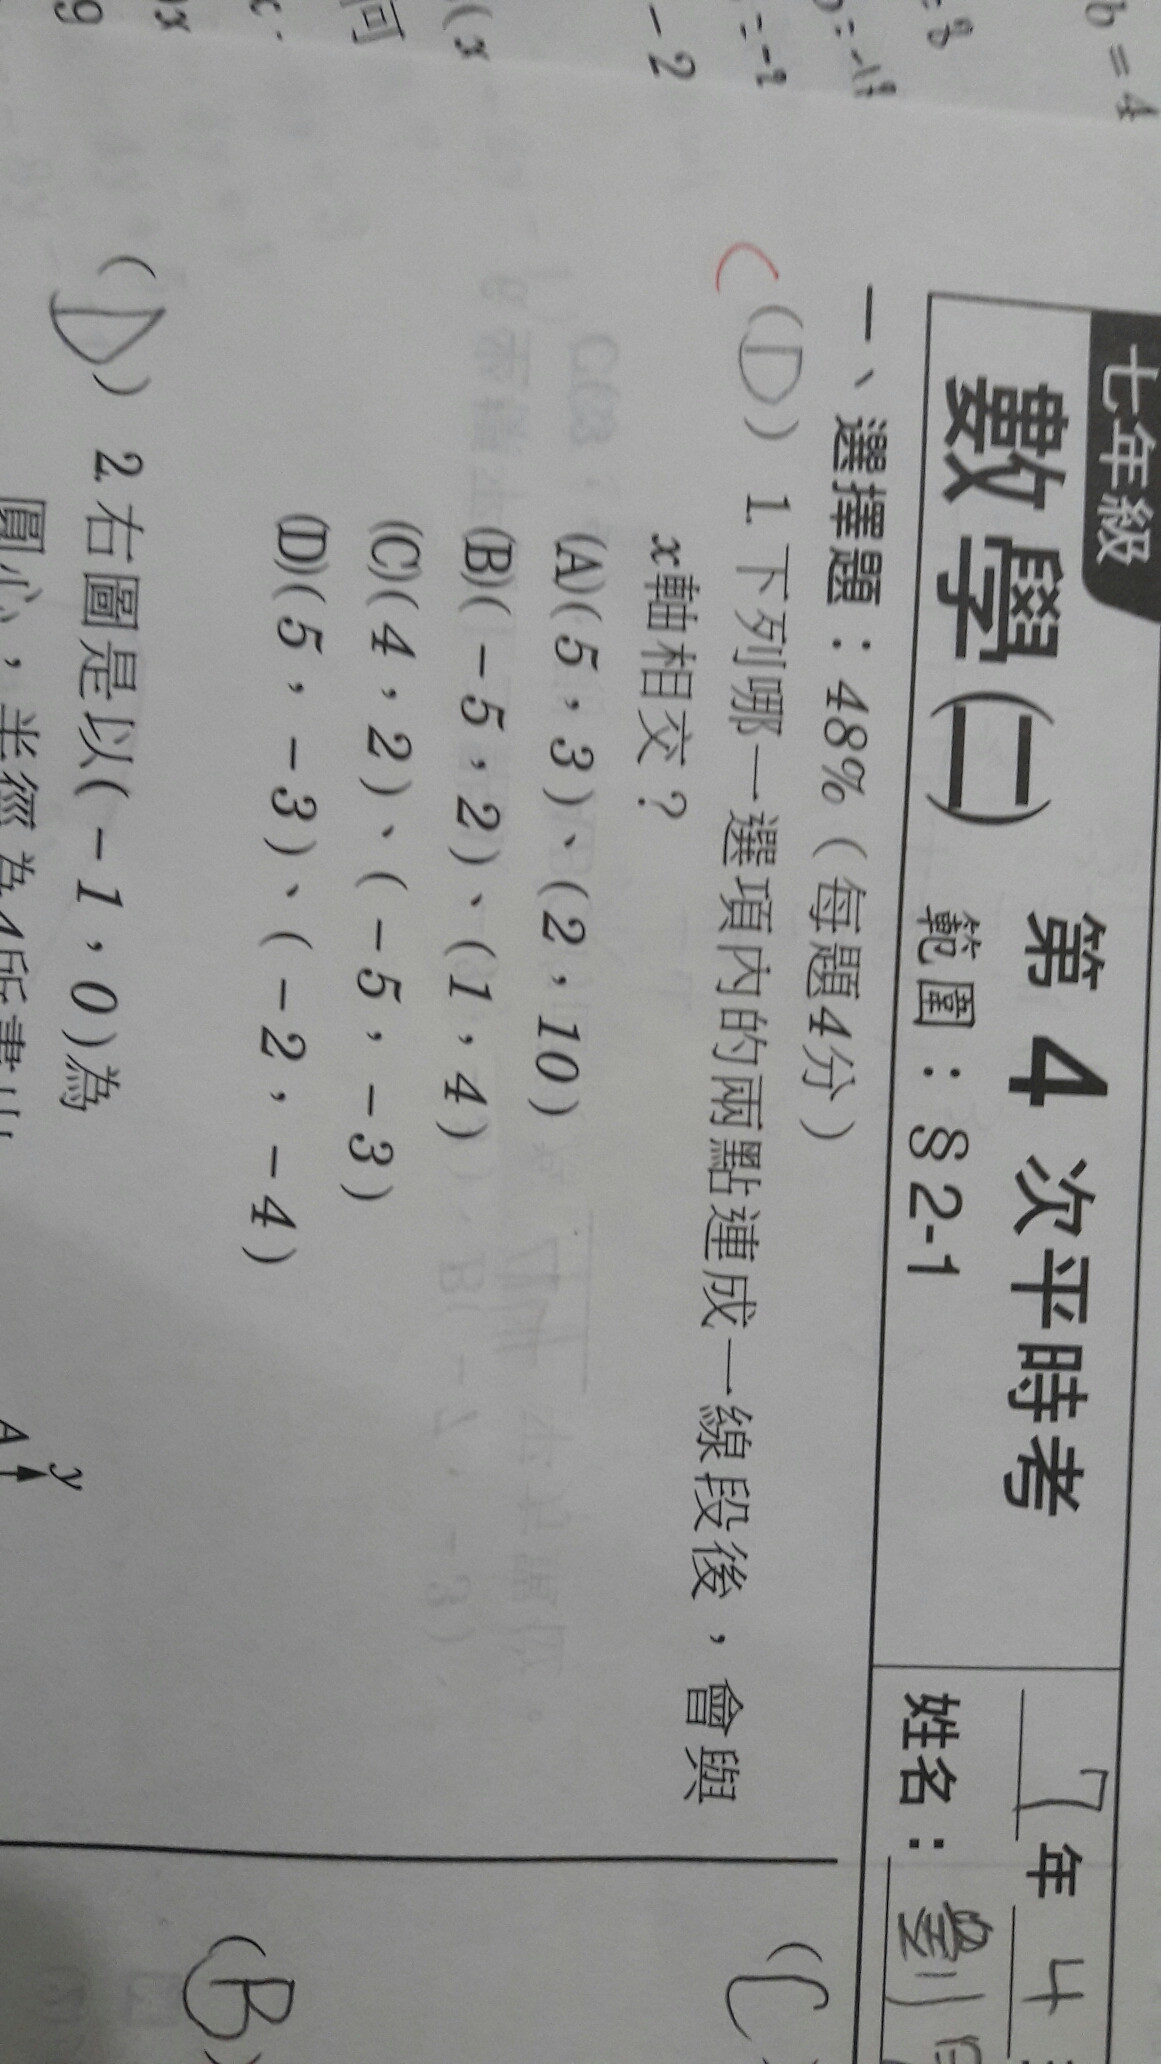 七年級
數學(二) 第4次平時考
範圍：§2-1
7年4
姓名：劉
一、選擇題：48%（每題4分）
(D) 1. 下列哪一選項內的兩點連成一線段後，會與
x軸相交？
(A)(5，3)、(2，10)
(B)(－5，2)、(1，4)
(C)(4，2)、(－5，－3)
(D)(5，－3)、(－2，－4)
(D) 2. 右圖是以(－1，0)為
圓心，半徑為4所畫出
y
A
(C
(B)
b=4
=8
=-2
-2
(x
何
x